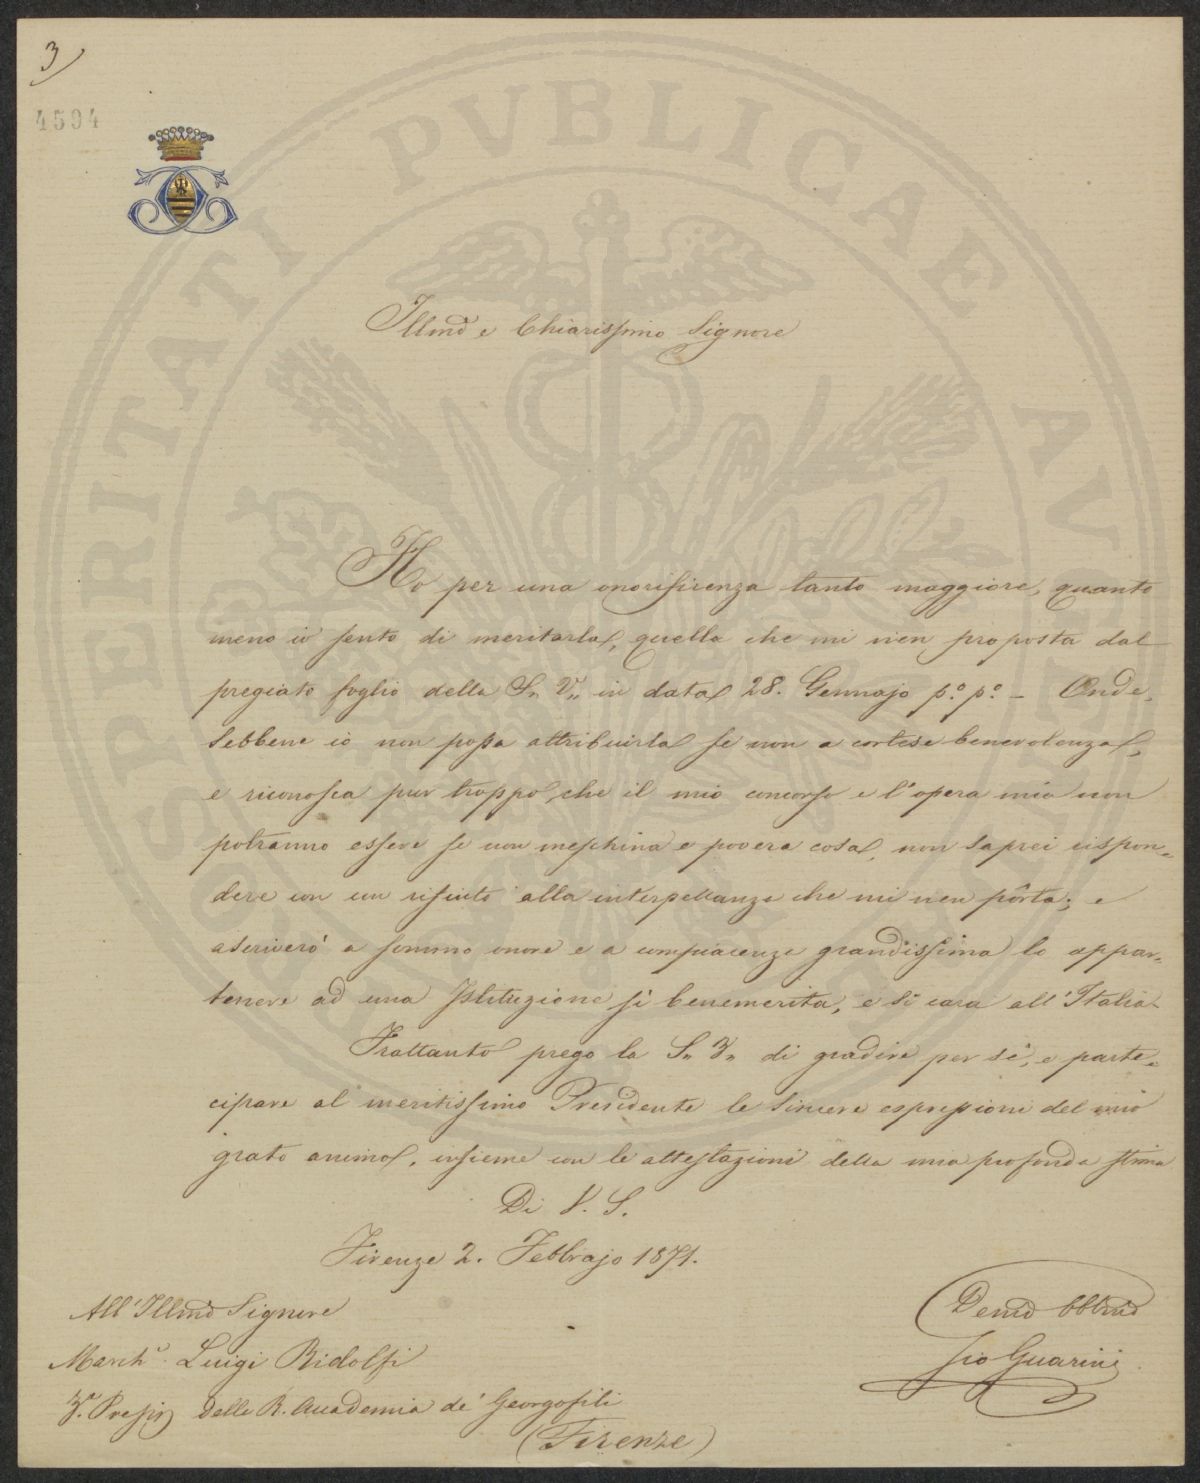 3)
4594
PROSPERITATI PVBLICAE AVGENDAE
Illmo e Chiarissimo Signore
Ho per una onorificenza tanto maggiore, quanto
meno io sento di meritarla, quella che mi vien proposta dal
pregiato foglio della S.a V.a in data 28. Gennajo p.o p.o - Onde,
sebbene io non possa attribuirla se non a cortese benevolenza,
e riconosca pur troppo, che il mio concorso e l'opera mia non
potranno essere se non meschina e povera cosa, non saprei rispon=
dere con un rifiuto alla interpellanza che mi vien pòrta; e
ascriverò a sommo onore e a compiacenza grandissima lo appar=
tenere ad una Istituzione sì benemerita, e sì cara all'Italia.
Frattanto prego la S.a V.a di gradire per sè, e parte=
cipare al meritissimo Presidente le sincere espressioni del mio
grato animo, insieme con le attestazioni della mia profonda stima
Di V. S.
Firenze 2. Febbrajo 1871.
All'Illmo Signore
March.e Luigi Ridolfi
V.e Presid. della R. Accademia de' Georgofili
(Firenze)
Devmo Obblmo
Gio Guarini